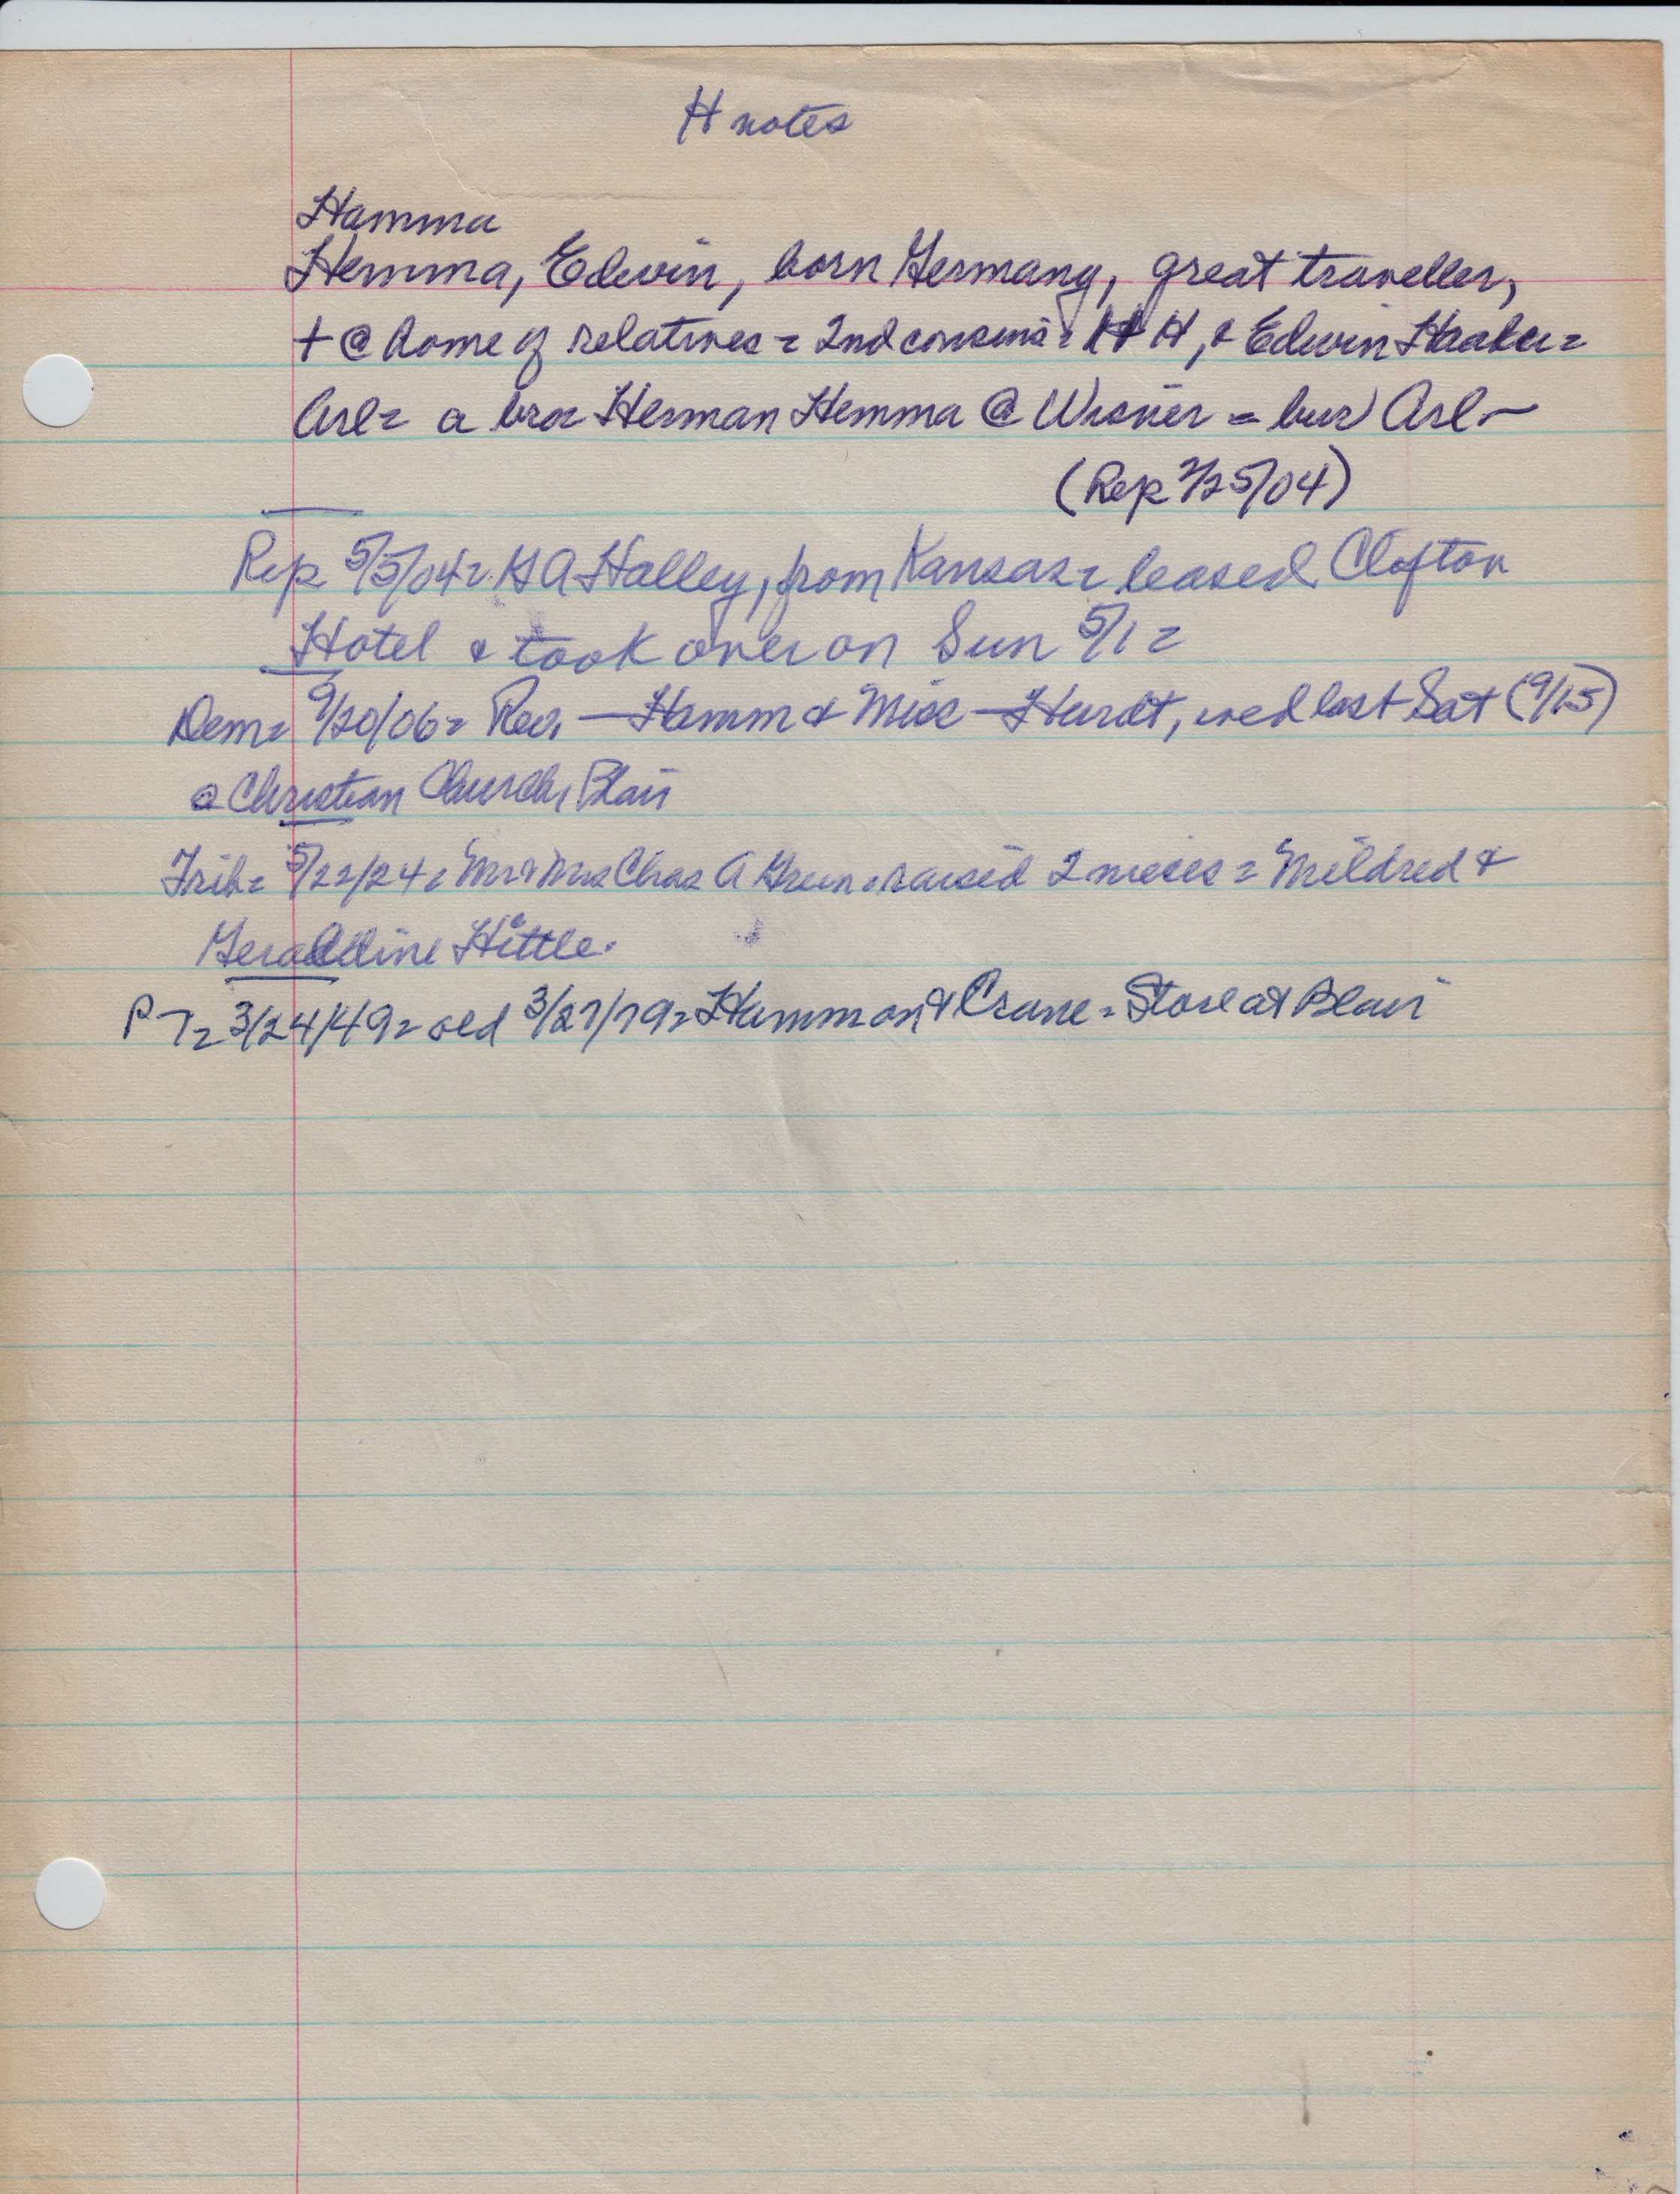 H notes
Hamma
Hemma, Edwin, born Germany, great traveller,
+ @ home of relatives = 2nd cousins = H H, & Edwin Haaker =
Arl = a bro = Herman Hemma @ Wisner = bur Arl -
(Rep 2/25/04)
Rep 5/5/04 = H A Halley, from Kansas = leased Clifton
Hotel & took over on Sun 5/1 =
Dem = 9/20/06 = Rev, — Hamm & Miss — Hurdt, wed last Sat (9/15)
@ Christian Church, Blair
Trib = 5/22/24 = Mr & Mrs Chas A Grun = raised 2 nieces = Mildred &
Geraldine Hittle.
P T = 3/24/49 = old 3/27/79 = Hammon & Crane = Store at Blair